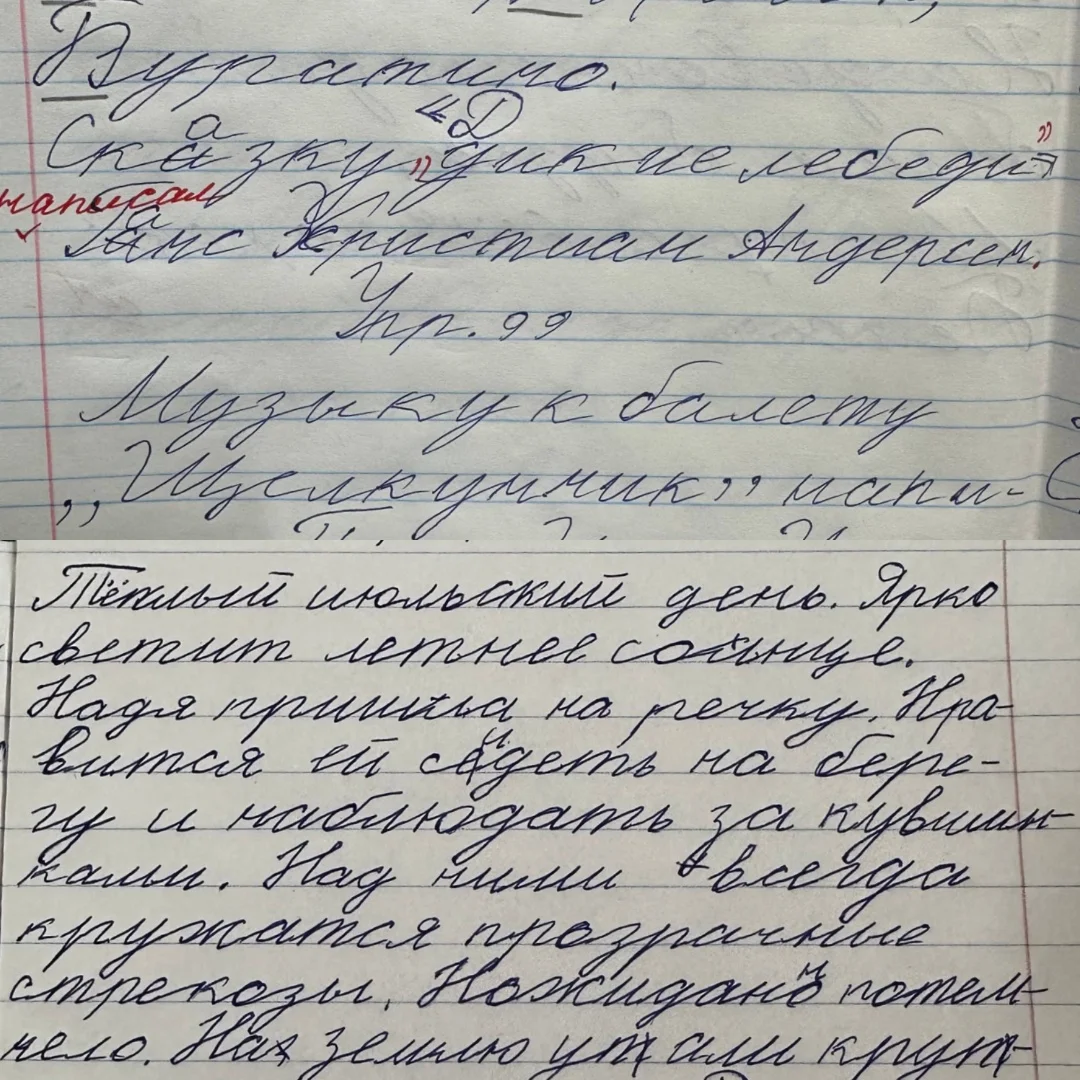 Буратино.
Сказку „Дикие лебеди”
написал
Ганс Христиан Андерсен.
Упр. 99
Музыку к балету
„Щелкунчик” напи-
Тёплый июльский день. Ярко
светит летнее солнце.
Надя пришла на речку. Нра-
вится ей сидеть на бере-
гу и наблюдать за кувшин-
ками. Над ними всегда
кружатся прозрачные
стрекозы.Ножидано потем-
нело. На землю упали круп-